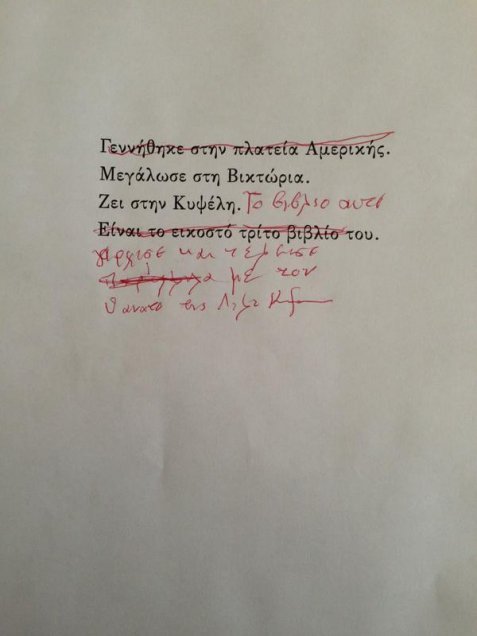 Γεννήθηκε στην πλατεία Αμερικής.
Μεγάλωσε στη Βικτώρια.
Ζει στην Κυψέλη. Το βιβλίο αυτό
Είναι το εικοστό τρίτο βιβλίο του.
άρχισε και τέλειωσε
με τον
θάνατο της